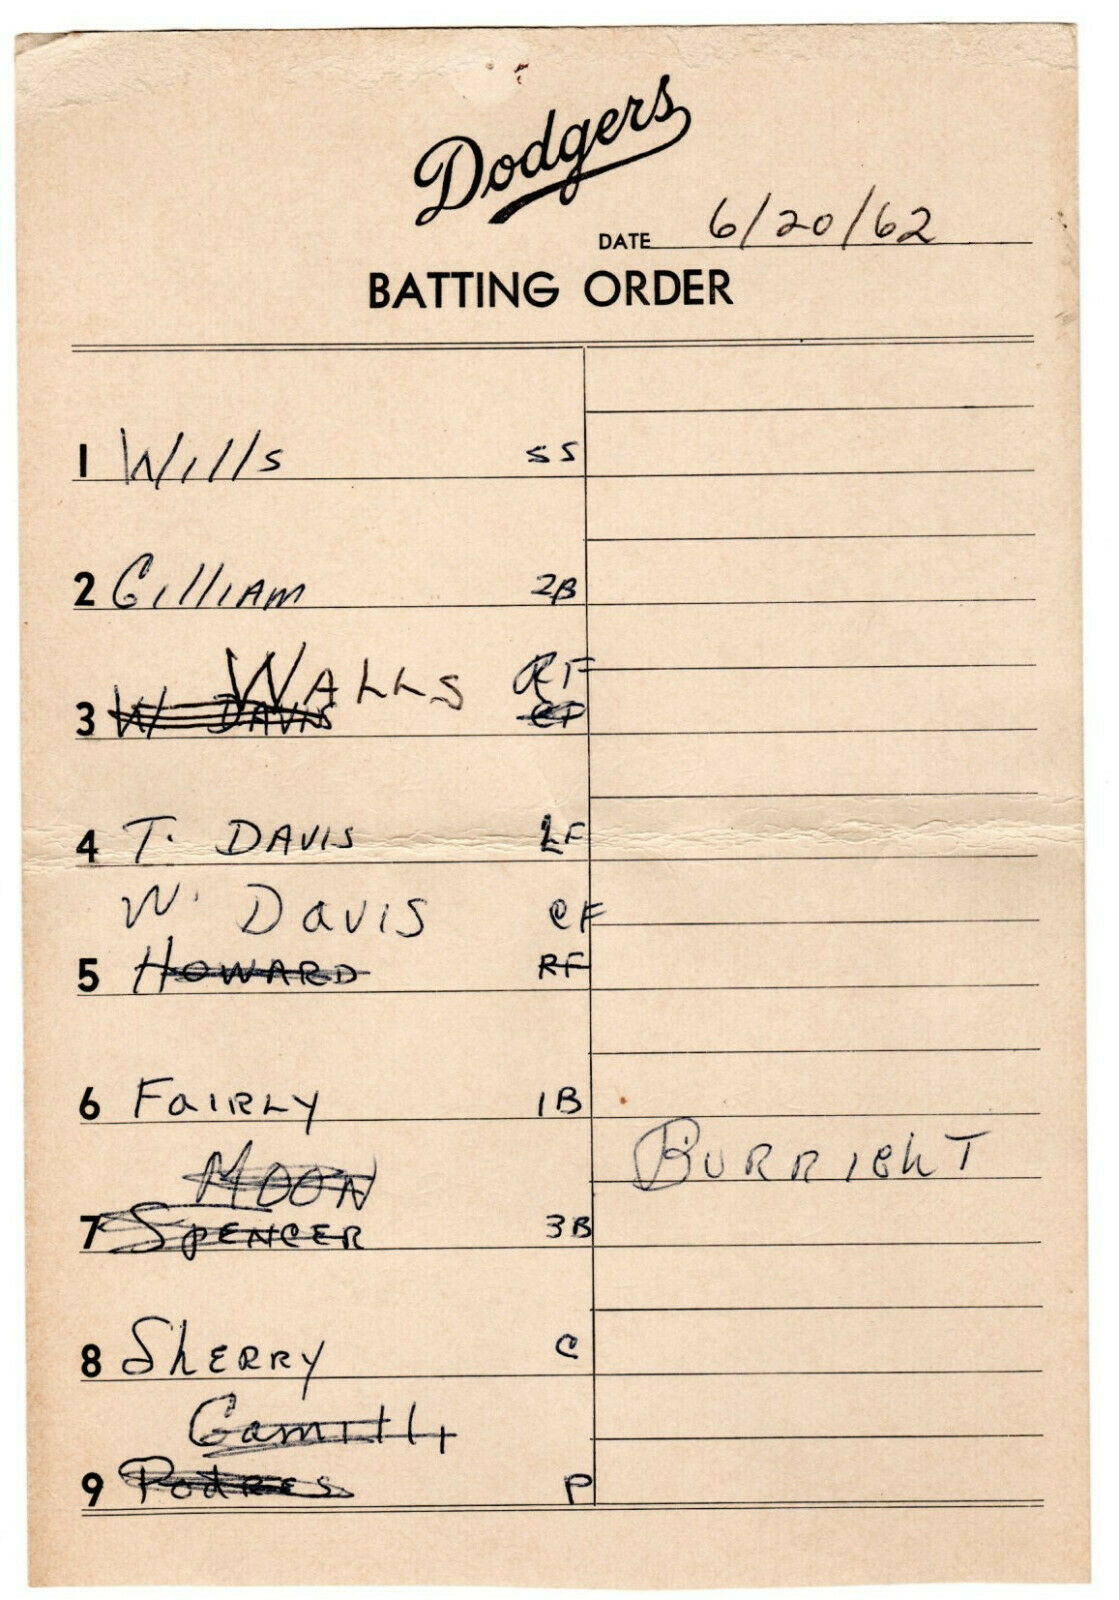 Dodgers
DATE 6/20/62
BATTING ORDER
1 Wills SS
2 Gilliam 2B
WALLS RF
3 W. DAVIS CF
4 T. DAVIS LF
W. DAVIS CF
5 HOWARD RF
6 FAIRLY 1B
MOON BURRIGHT
7 SPENCER 3B
8 SHERRY C
Camilli
9 PODRES P